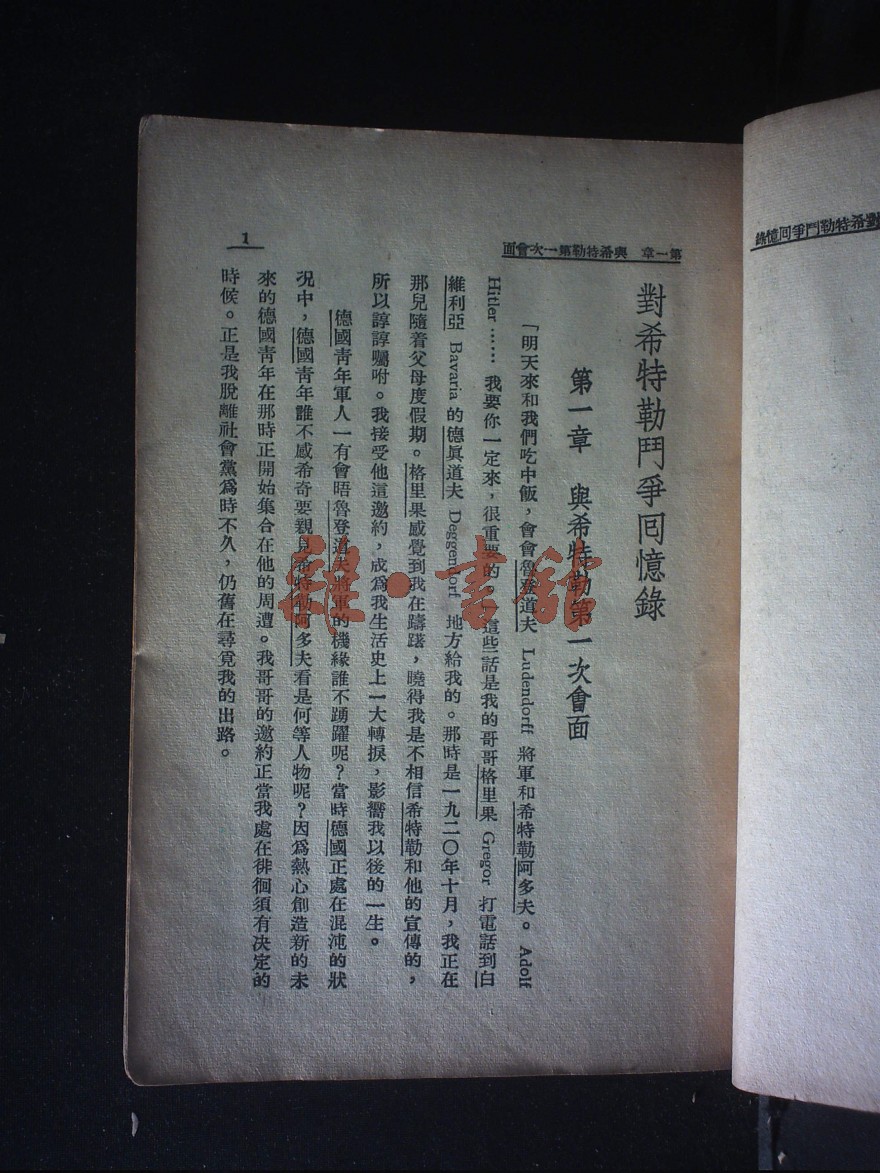 對希特勒鬥爭回憶錄
第一章 與希特勒第一次會面
1
對希特勒鬥爭回憶錄
第一章 與希特勒第一次會面
「明天來和我們吃中飯,會會魯登道夫 Ludendorff 將軍和希特勒阿多夫。Adolf
Hitler…… 我要你一定來,很重要的」這些話是我的哥哥格里果 Gregor 打電話到白
維利亞 Bavaria 的德眞道夫 Deggendorf 地方給我的。那時是一九二〇年十月,我正在
那兒隨着父母度假期。格里果感覺到我在躊躇,曉得我是不相信希特勒和他的宣傳的,
所以諄諄囑咐。我接受他這邀約,成爲我生活史上一大轉捩,影響我以後的一生。
德國青年軍人一有會晤魯登道夫將軍的機緣誰不踴躍呢?當時德國正處在混沌的狀
況中,德國青年誰不感希奇要親見希特勒阿多夫看是何等人物呢?因爲熱心創造新的未
來的德國青年在那時正開始集合在他的周遭。我哥哥的邀約正當我處在徘徊須有决定的
時候。正是我脫離社會黨爲時不久,仍舊在尋覓我的出路。
雜·書館